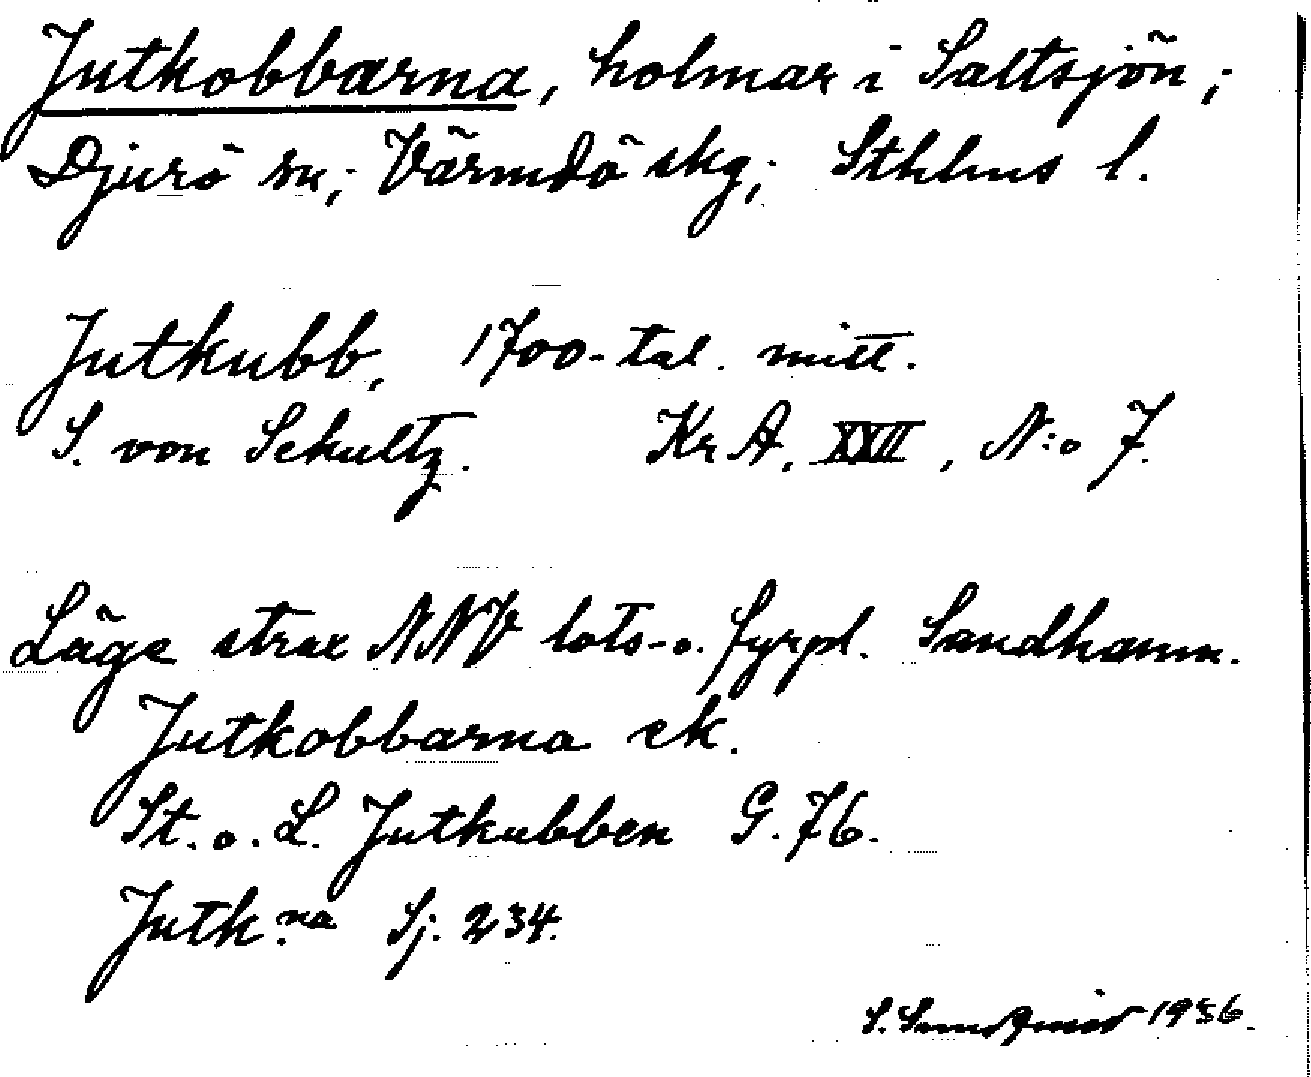 Jutkobbarna, holmar i Saltsjön;
Djurö sn; Värmdö skg; Sthlms l.
Jutkubb, 1700-tal. mitt.
S. von Schultz. Kr A, XXII, N:o 7.
Läge strax NNV lots- o. fyrpl. Sandhamn.
Jutkobbarna ek.
St. o. L. Jutkubben G. 76.
Jutk:na Sj. 234.
S. 1936.